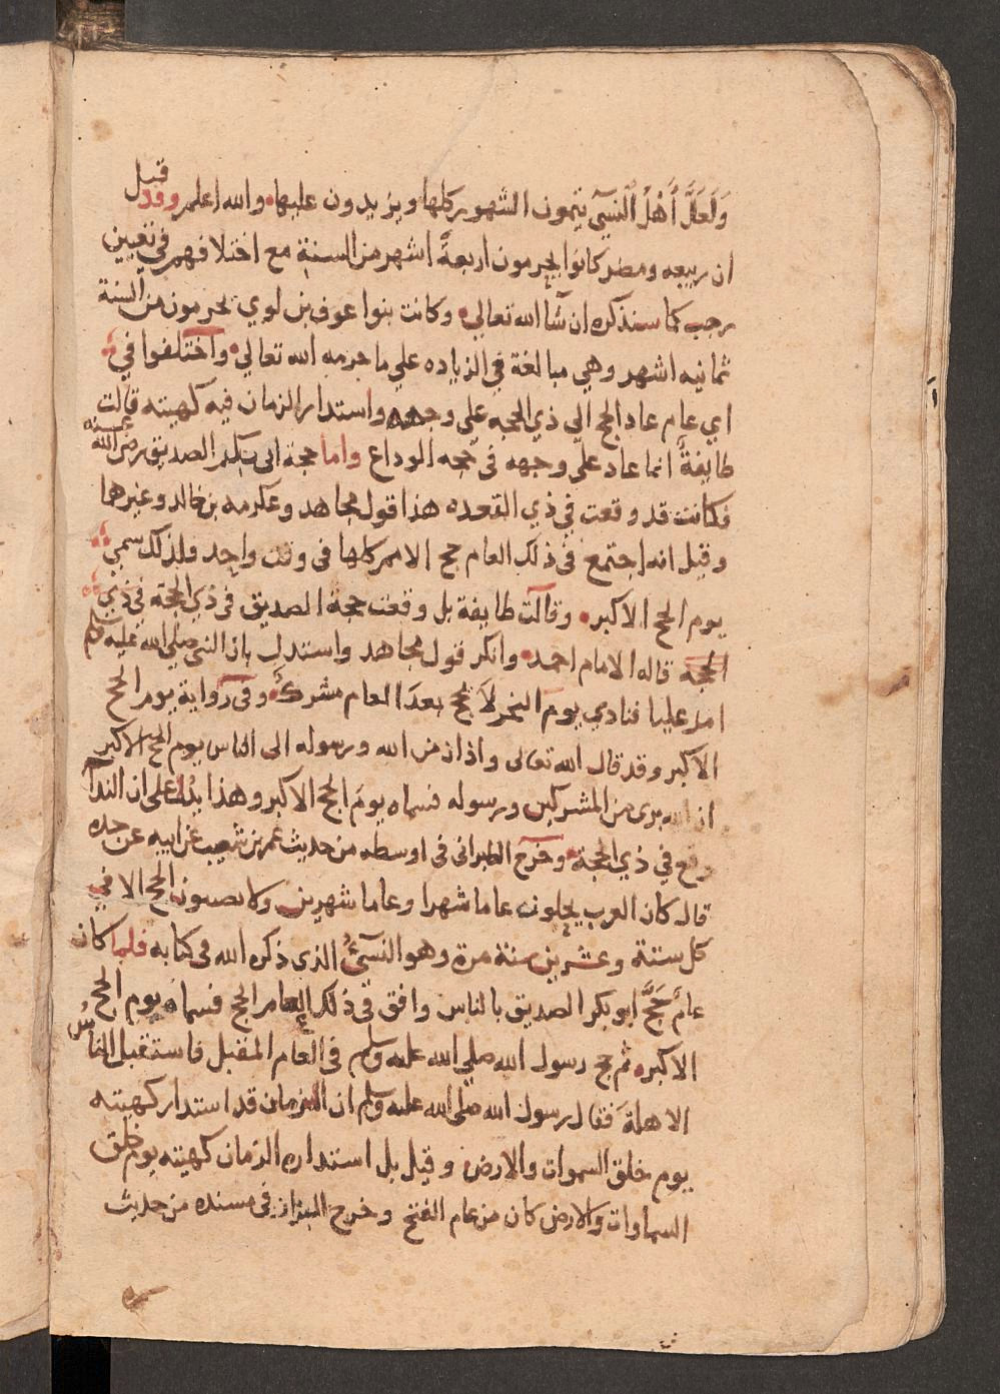 وَلَعَلَّ أَهْلَ النَّسِيِّ يتمون الشهور كلها ويزيدون عليها، والله اعلم وقد قيل
ان ربيعه ومضر كانوا يحرمون اربعةً اشهر من السنة مع اختلافهم في تعيين
رجب كما سنذكره ان شآ الله تعالي، وكانت بنوا عوف بن لوي يحرمون من السنة
ثمانيه اشهر وهي مبالغة في الزياده علي ما حرمه الله تعالي، واختلفوا في
اي عام عاد الحج الي ذي الحجه علي وجهه واستدار الزمان فيه كهيته قالت
طايفةً انما عاد علي وجهه في حجه الوداع واما حجة ابي بكر الصديق رضي الله عنه
فكانت قد وقعت في ذي القعده هذا قول مجاهد وعكرمه بن خالد وغيرهما
وقيل انه اجتمع في ذلك العام حج الامم كلها في وقت واحد فلذلك سمي
يوم الحج الاكبر، وقالت طايفة بل وقعت حجة الصديق في ذي الحجة في ذي
الحجة قاله الامام احمد، وانكر قول مجاهد واستدل بان النبي صلي الله عليه وسلم
امر عليا فنادي يوم النحر لا يحج بعد العام مشرك، وفي رواية يوم الحج
الاكبر وقد قال الله تعالى واذان من الله ورسوله الى الناس يوم الحج الاكبر
ان الله بري من المشركين ورسوله فسماه يوم الحج الاكبر وهذا يدل على ان الندآ
وقع في ذي الحجة، وخرج الطبراني في اوسطه من حديث عمر بن شعيب عن ابيه عن جده
قال كان العرب يحلون عاما شهرا وعاما شهرين ولا يصيبون الحج الا في
كل ستة وعشرين سنة مرة وهو النسيُّ الذي ذكره الله في كتابه فلما كان
عامَ حَجَّ ابو بكر الصديق بالناس وافق في ذلك العام الحج فسماه يوم الحج
الاكبر، ثم حج رسول الله صلي الله عليه وسلم في العام المقبل فاستقبل الناسُ
الاهلة فقال رسول الله صلي الله عليه وسلم ان الزمان قد استدار كهيته
يوم خلق السموات والارض، وقيل بل استداره الزمان كهيته يوم خلق
السماوات والارض كان من عام الفتح وخرج البزار في مسنده من حديث